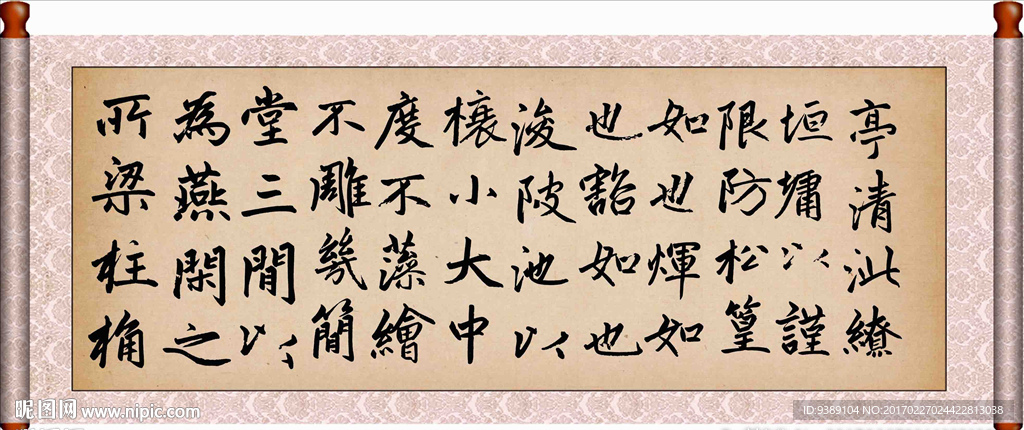 亭清泚繚
垣墉以謹
限防松篁
如也煇如
也豁如也
浚陂池以
榱小大中
度不藻繪
不雕幾簡
堂三間以
為燕閑之
所梁柱桷
昵图网 www.nipic.com
ID:9389104 NO:20170227024422813038